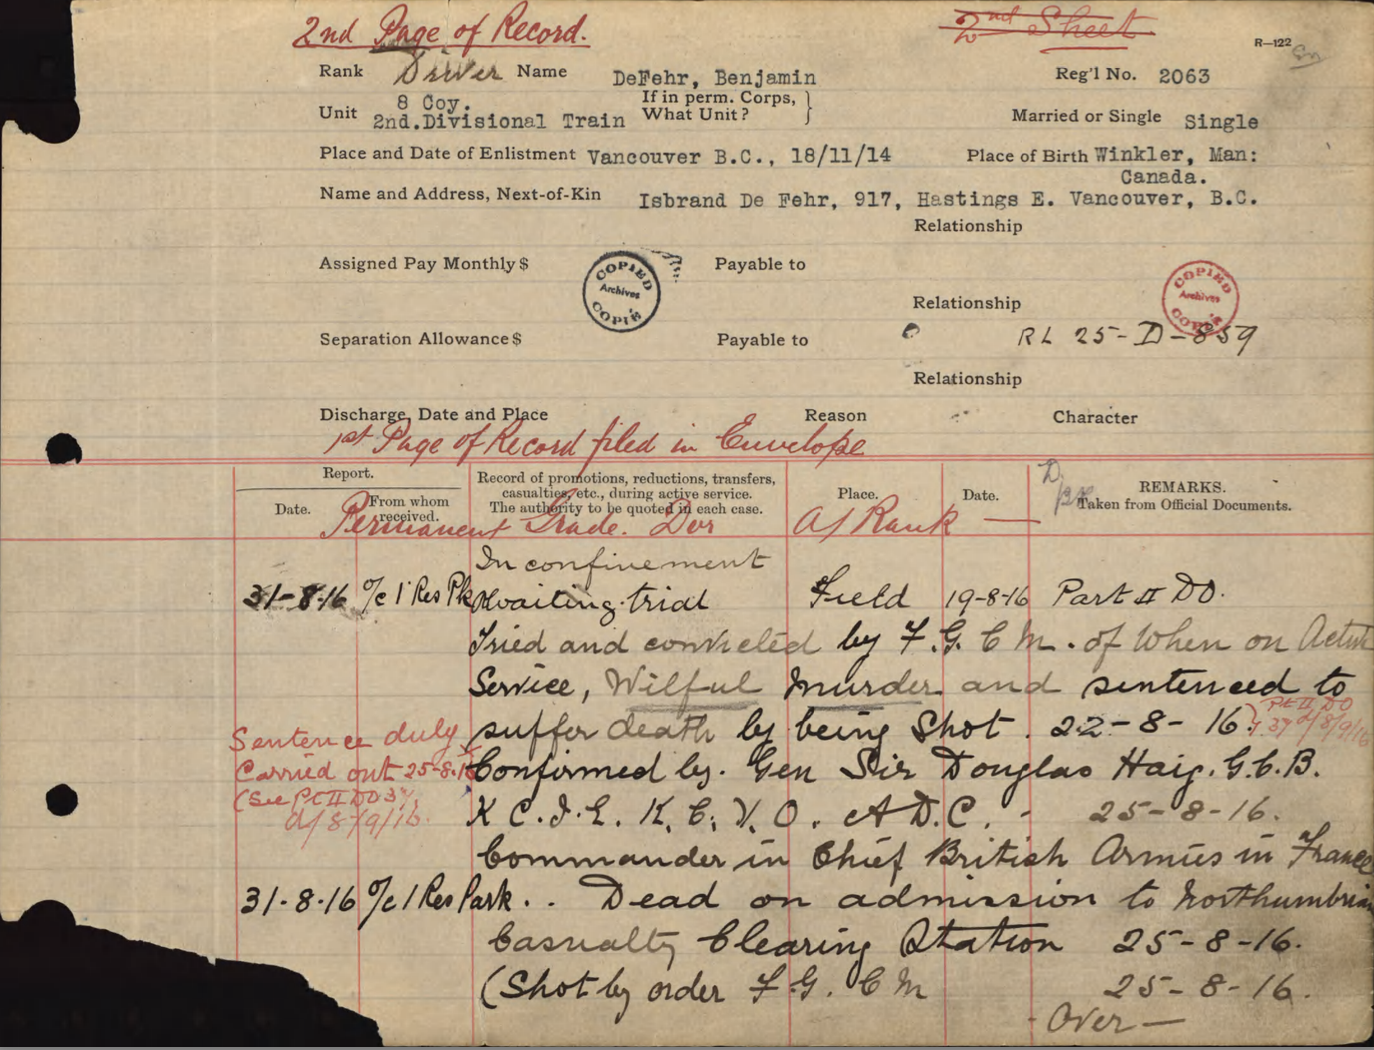 2nd Page of Record.
2nd Sheet
R-122
Rank Driver Name DeFehr, Benjamin Reg'l No. 2063
Unit 8 Coy. 2nd.Divisional Train If in perm. Corps, What Unit? } Married or Single Single
Place and Date of Enlistment Vancouver B.C., 18/11/14 Place of Birth Winkler, Man:
Canada.
Name and Address, Next-of-Kin Isbrand De Fehr, 917, Hastings E. Vancouver, B.C.
Relationship
Assigned Pay Monthly $ Payable to
COPIED Archives COPIÉ
COPIED Archives COPIÉ
Relationship
Separation Allowance $ Payable to RL 25-D-859
Relationship
Discharge, Date and Place Reason Character
1st Page of Record filed in Envelope
Report.
Date. From whom received.
Record of promotions, reductions, transfers,
casualties, etc., during active service.
The authority to be quoted in each case.
Place. Date. REMARKS.
Taken from Official Documents.
Permanent Grade. Dvr A/Rank —
In confinement
31-8-16 O/c 1 Res Pk Awaiting trial Field 19-8-16 Part II DO.
Tried and convicted by F.G.C.M. of When on Active
Service, Wilful Murder and sentenced to
suffer death by being Shot. 22-8-16. Pt II DO
37 d/8/9/16
Sentence duly
Carried out 25-8-16
(See Pt II DO 37,
d/8/9/16.
Confirmed by. Gen Sir Douglas Haig. G.C.B.
K.C.I.E. K.C.V.O. A.D.C. - 25-8-16.
Commander in Chief British Armies in France
31-8-16 O/c 1 Res Park. . . Dead on admission to Northumbrian
Casualty Clearing Station 25-8-16.
(Shot by order F.G.C.M 25-8-16.
- Over —